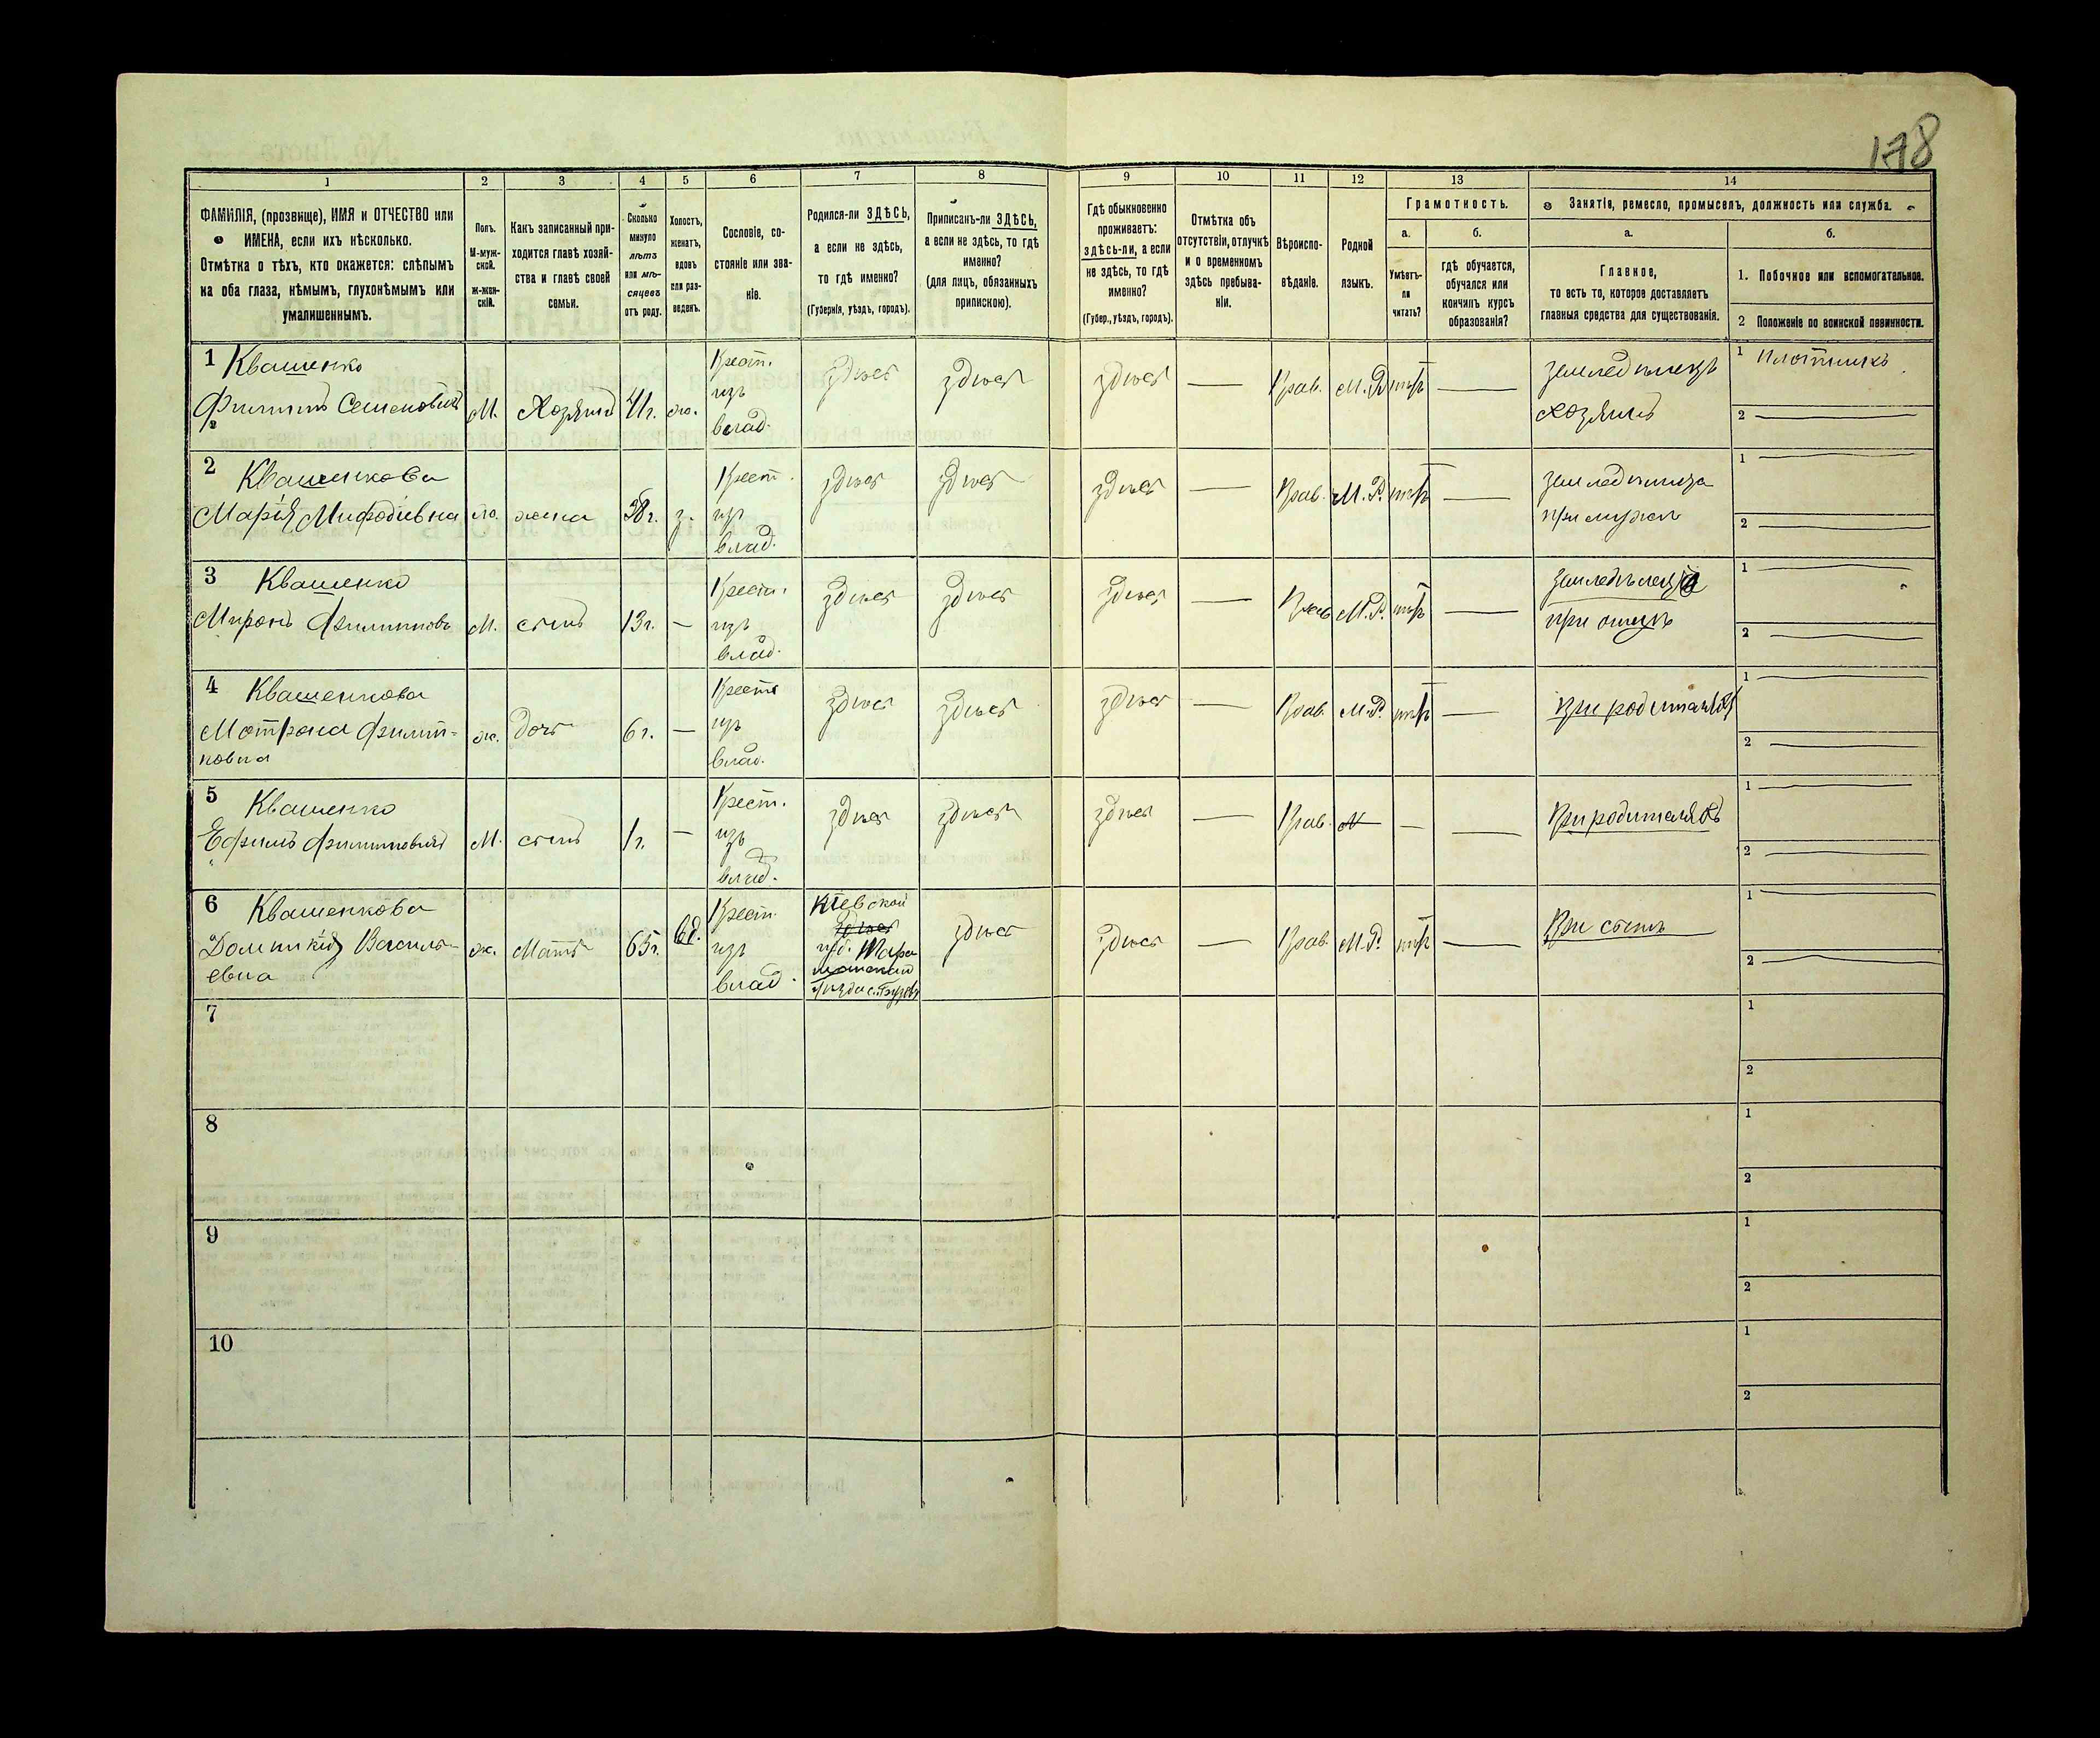 178
1 2 3 4 5 6 7 8 9 10 11 12 13 14
ФАМИЛІЯ, (прозвище), ИМЯ и ОТЧЕСТВО или
ИМЕНА, если ихъ нѣсколько.
Отмѣтка о тѣхъ, кто окажется: слѣпымъ
на оба глаза, нѣмымъ, глухонѣмымъ или
умалишеннымъ.
Полъ.
М-муж-
ской.
Ж-жен-
скій.
Какъ записанный при-
ходится главѣ хозяй-
ства и главѣ своей
семьи.
Сколько
минуло
лѣтъ
или мѣ-
сяцевъ
отъ роду.
Холостъ,
женатъ,
вдовъ
или раз-
веденъ.
Сословіе, со-
стояніе или зва-
ніе.
Родился-ли ЗДѢСЬ,
а если не здѣсь,
то гдѣ именно?
(Губернія, уѣздъ, городъ).
Приписанъ-ли ЗДѢСЬ,
а если не здѣсь, то гдѣ
именно?
(для лицъ, обязанныхъ
припискою).
Гдѣ обыкновенно
проживаетъ:
здѣсь-ли, а если
не здѣсь, то гдѣ
именно?
(Губер., уѣздъ, городъ).
Отмѣтка объ
отсутствіи, отлучкѣ
и о временномъ
здѣсь пребыва-
ніи.
Вѣроиспо-
вѣданіе.
Родной
языкъ.
Грамотность.
а.
Умѣетъ-
ли
читать?
б.
гдѣ обучается,
обучался или
кончилъ курсъ
образованія?
Занятіе, ремесло, промыселъ, должность или служба.
а.
Главное,
то есть то, которое доставляетъ
главныя средства для существованія.
б.
1. Побочное или вспомогательное.
2 Положеніе по воинской повинности.
1 Квашенко
Филиппъ Семеновичъ
М.
Хозяинъ
41г.
ж.
Крест.
изъ
влад.
здѣсь
здѣсь
здѣсь
—
Прав.
М.Р.
нѣтъ
—
земледѣлецъ
хозяинъ
1 плотникъ
2 —
2 Квашенкова
Марія Мифодіевна
ж.
жена
38г.
з.
Крест.
изъ
влад.
здѣсь
здѣсь
здѣсь
—
Прав.
М.Р.
нѣтъ
—
при мужѣ
1 —
2 —
3 Квашенко
Миронъ Филиповъ
М.
сынъ
13г.
—
Крест.
изъ
влад.
здѣсь
здѣсь
здѣсь
—
Прав.
М.Р.
нѣтъ
—
при отцѣ
1 —
2 —
4 Квашенкова
Мотрона Филип-
повна
ж.
дочь
6г.
—
Крест.
изъ
влад.
здѣсь
здѣсь
здѣсь
—
Прав.
М.Р.
нѣтъ
—
При родителяхъ
1 —
2 —
5 Квашенко
Ефимъ Филиповичъ
М.
сынъ
1г.
—
Крест.
изъ
влад.
здѣсь
здѣсь
здѣсь
—
Прав.
—
—
При родителяхъ
1 —
2 —
6 Квашенкова
Домникія Василь-
евна
ж.
Мать
65г.
вд.
Крест.
изъ
влад.
Кіевской
здѣсь
губ.
здѣсь
здѣсь
—
Прав.
М.Р.
нѣтъ
—
При сынѣ
1 —
2 —
7
1
2
8
1
2
9
1
2
10
1
2